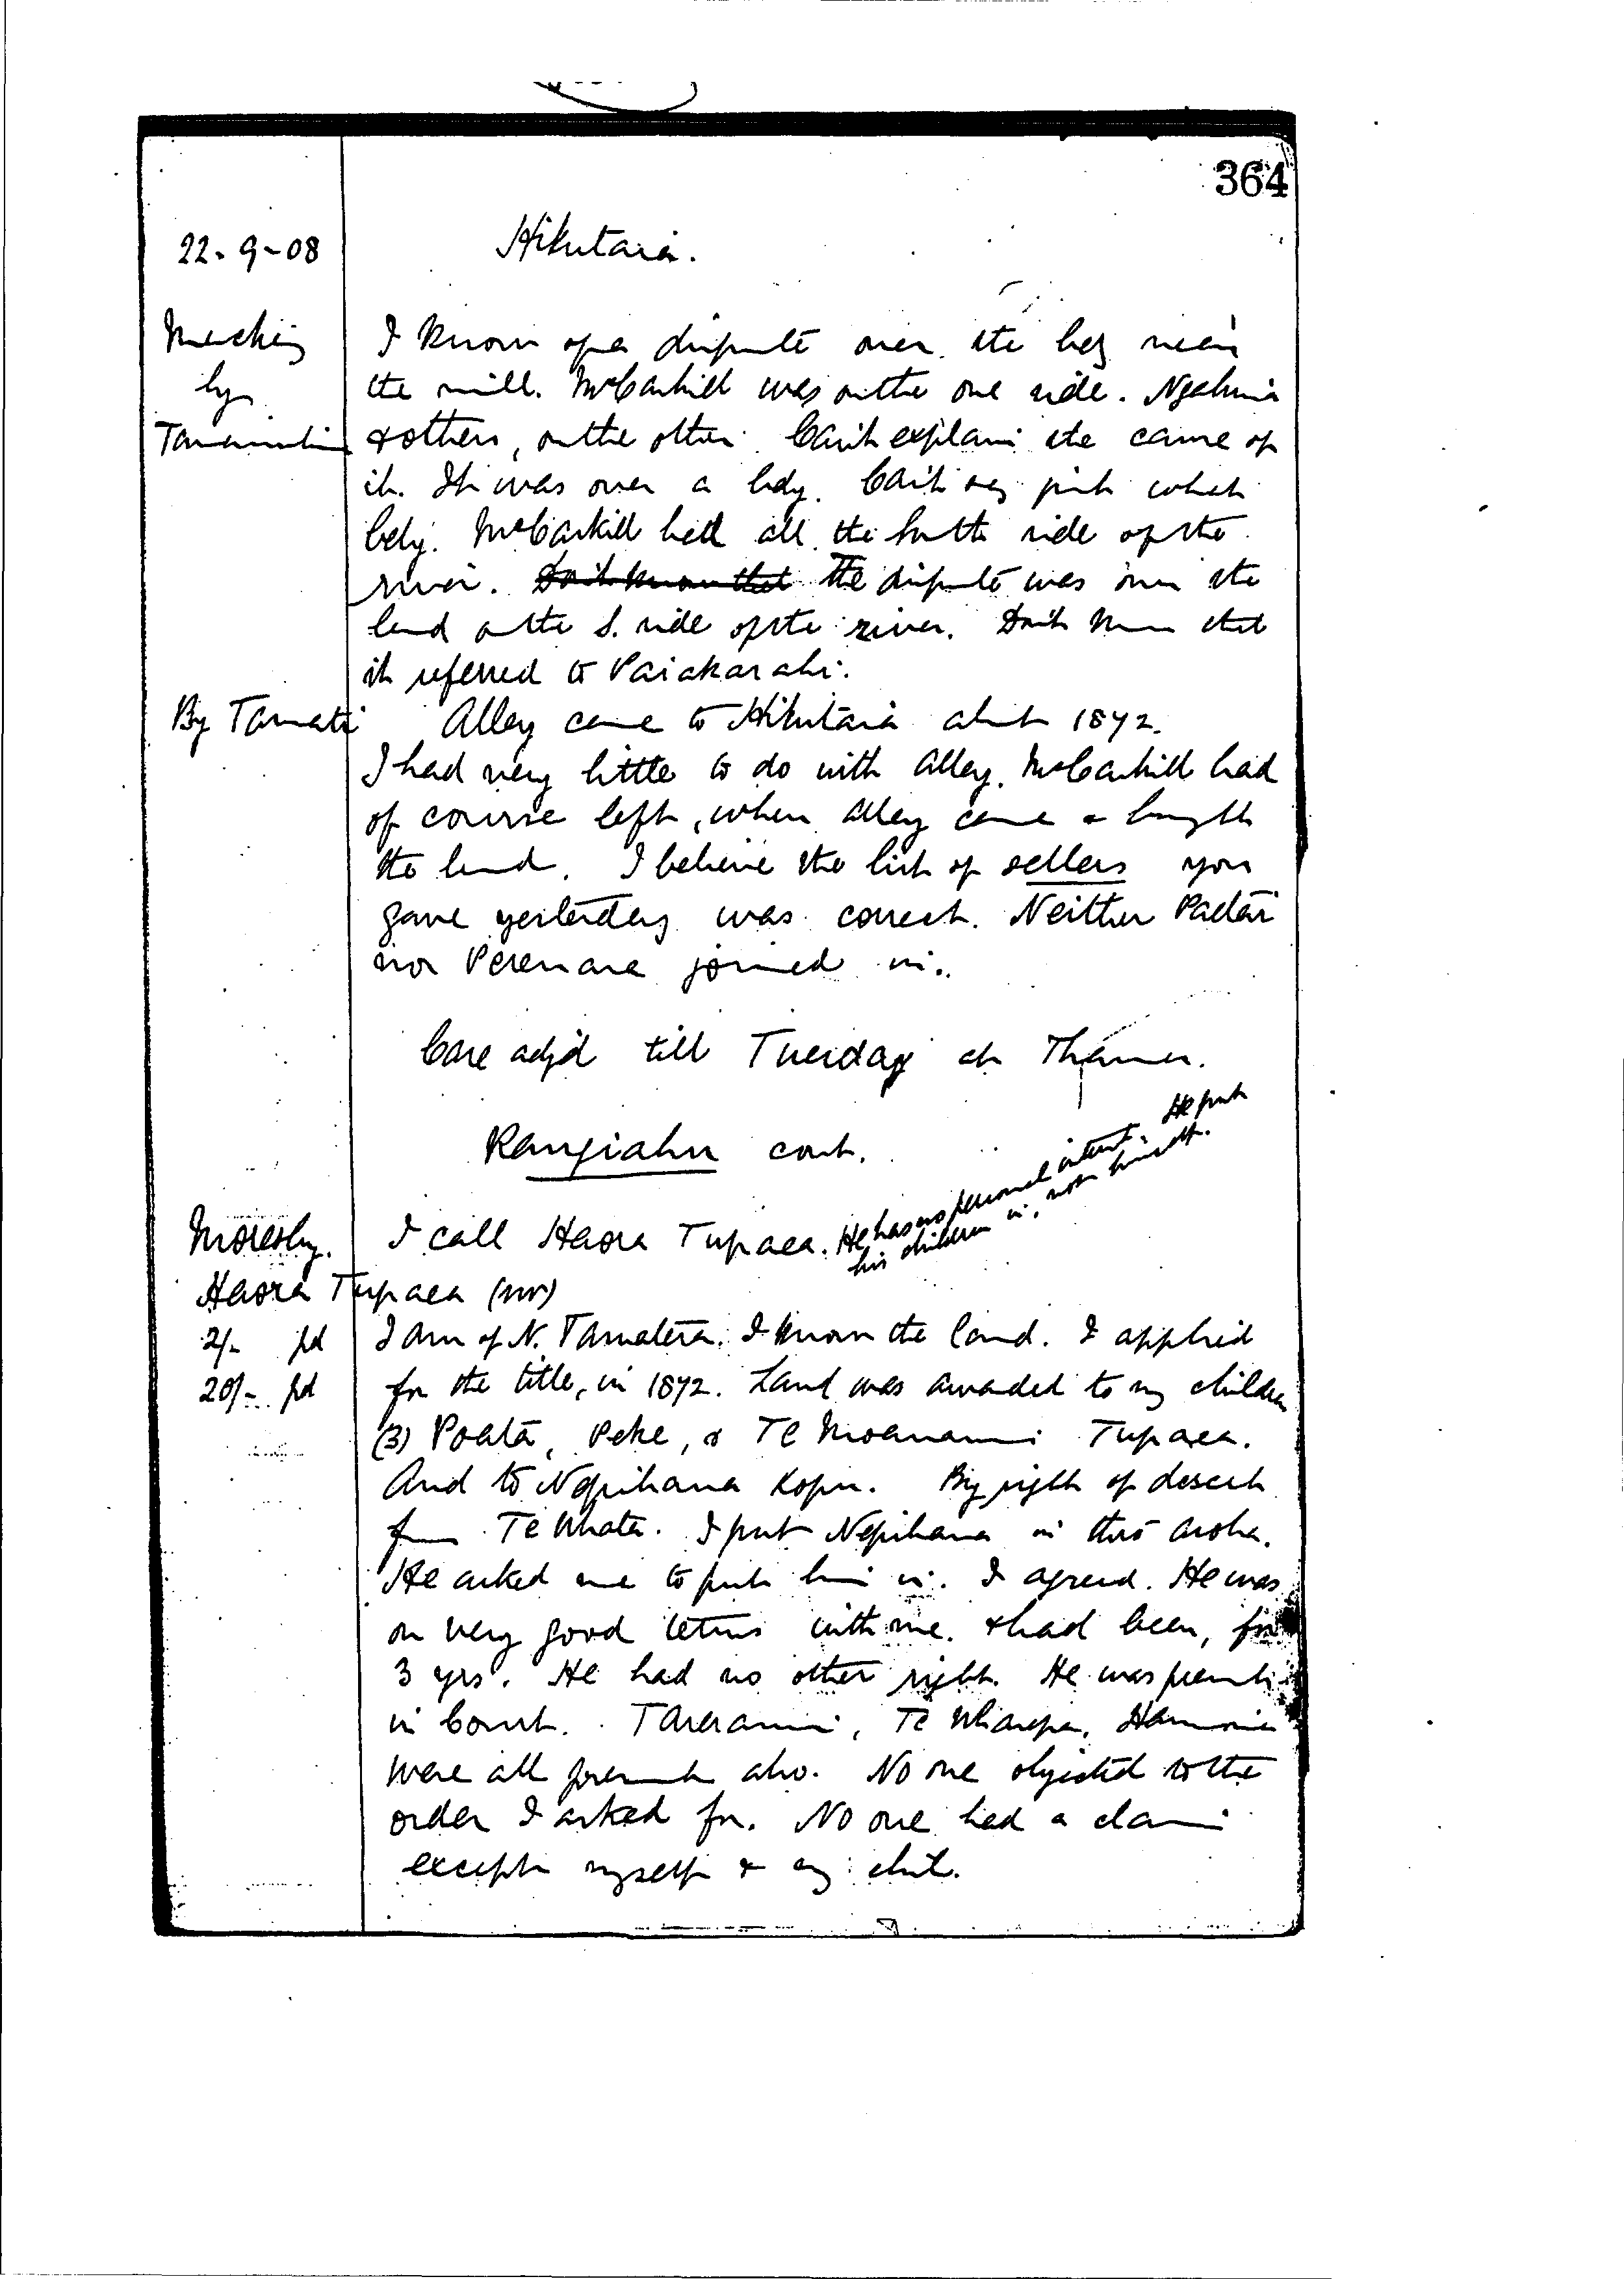 364
22-9-08
Hikutaia.
I know of a dispute over the bdy near
by
the mill. McCaskill was on the one side.
& others, on the other. Can't explain the cause of
it. It was over a bdy. Can't say just what
bdy. McCaskill held all the South side of the
river. Don't know that The dispute was over the
land on the S. side of the river. Don't know that
it referred to Paiakarahi.
By Tamati
Alley came to Hikutaia about 1872.
I had very little to do with Alley. McCaskill had
of course left, when Alley came & bought
the land. I believe the list of sellers you
gave yesterday was correct. Neither
nor Pereniara joined in.
Case adj'd till Tuesday at Thames.
Rangiahu cont.
Moresby.
I call Haora Tupaea. He has no personal interest. He put
his children in, not himself.
Haora Tupaea (sw)
2/- pd
I am of N. Tamatera. I know the land. I applied
20/- pd
for the title, in 1872. Land was awarded to my children
(3) Poata, Peke, & Te Moananui Tupaea.
And to Nepihana Kopu. By right of descent
from Te Whata. I put Nepihana in thro' aroha.
He asked me to put him in. I agreed. He was
on very good terms with me. & had been, for
3 yrs. He had no other right. He was present
in Court. Tararanui, Te Wharepa,
were all present also. No one objected to the
order I asked for. No one had a claim
except myself & my chil.